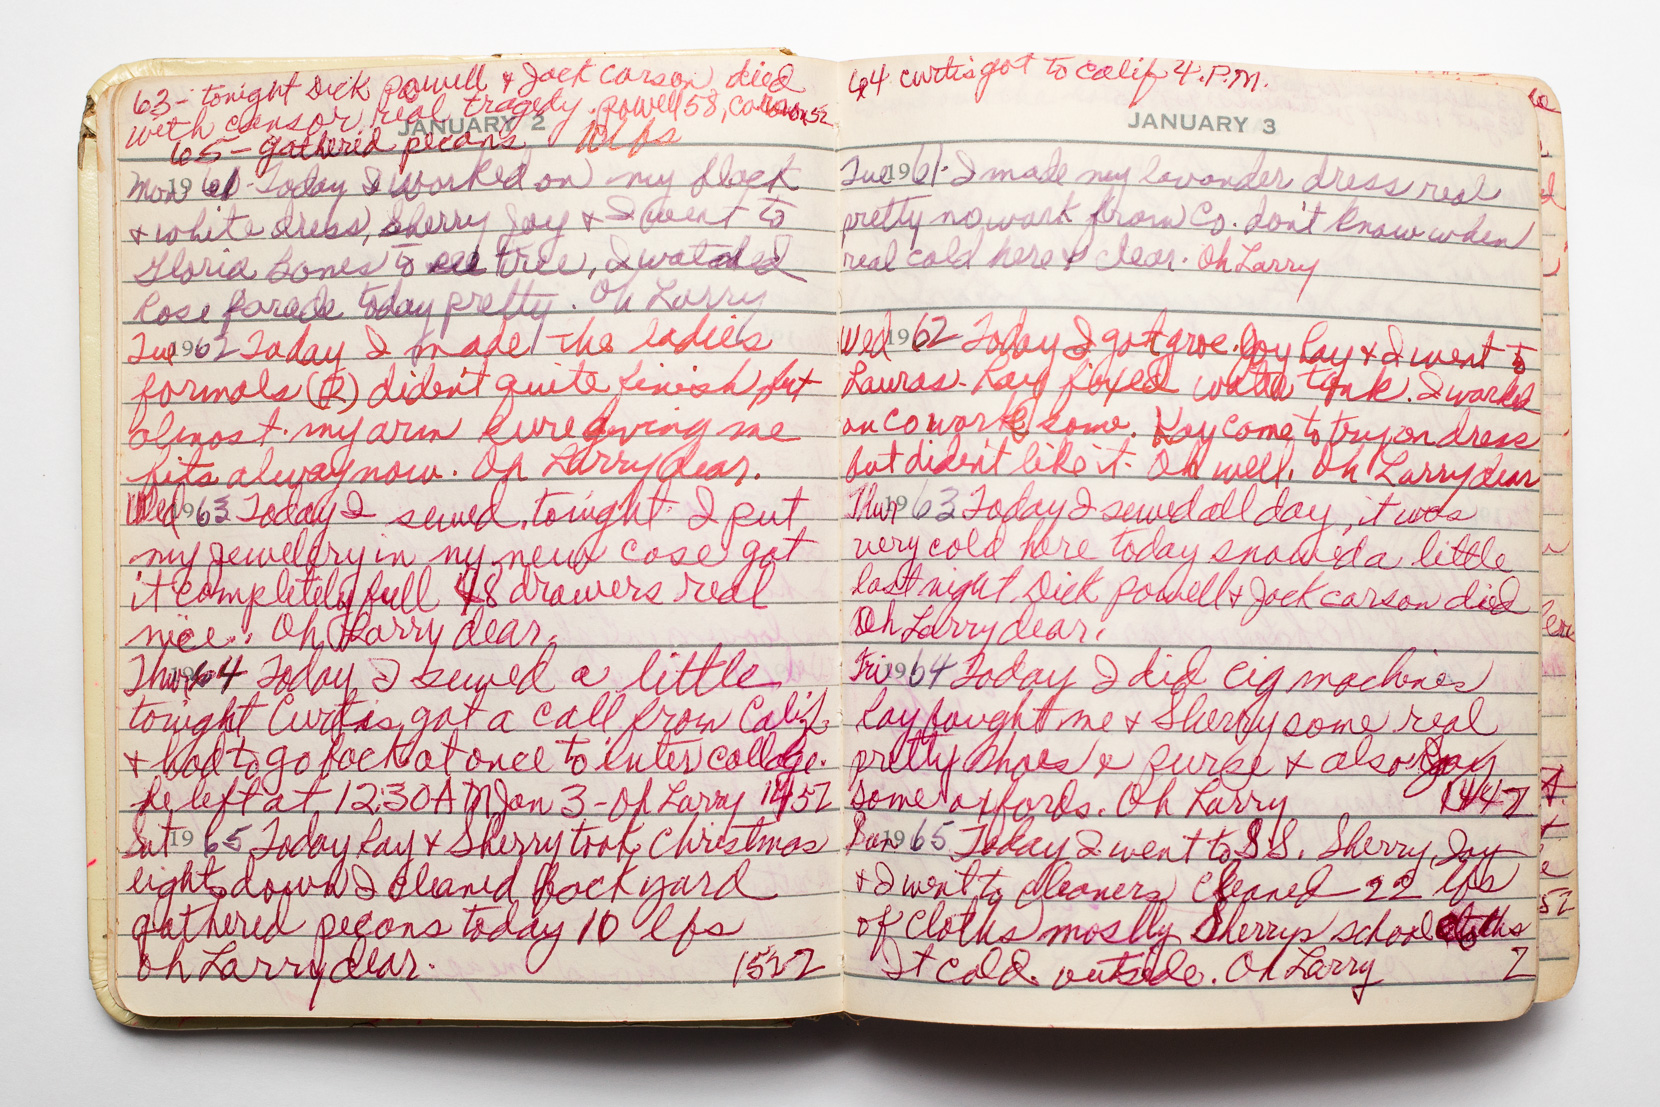 63- tonight Dick powell & Jack carson died
with cansor, real tragedy. powell 58, carson 52
JANUARY 2
65- gathered pecans 10 lbs
Mon 1961- Today I worked on my black
& white dress, Sherry Joy & I went to
Gloria Bones to see tree, I watched
Rose Parade today pretty. Oh Larry
Tue 1962 Today I made the ladies
formals (R) dident quite finish but
almost. my arm sure giving me
fits alway now. Oh Larry dear.
Wed 1963 Today I sewed, tonight I put
my jewelery in my new case got
it completely full 8 drawers real
nice. Oh Larry dear.
Thur 1964 Today I sewed a little
tonight Curtis got a call from Calif.
& had to go back at once to enter collage.
he left at 12:30 AM Jan 3 - Oh Larry
Sat 1965 Today Ray & Sherry took Christmas
lights down I cleaned back yard
gathered pecans today 10 lbs
Oh Larry dear. 152Z
64 curtis got to calif 4. P.M.
JANUARY 3
Tue 1961- I made my lavander dress real
pretty no work from Co. don't know when
real cold here & clear. Oh Larry
Wed 1962 Today I got groc. Joy Ray & I went to
Lauras- Ray fixed water tank. I worked
on Co work some. Kay come to try on dress
but dident like it. Oh well. Oh Larry dear
Thur 1963 Today I sewed all day, it was
very cold here today snowed a little
last night, Dick Powell & Jack carson died
Oh Larry dear.
Fri 1964 Today I did cig machines
Ray bought me & Sherry some real
pretty shoes & purse & also Joy
some oxfords. Oh Larry
Sun 1965 Today I went to S.S. Sherry Joy
& I went to cleaners cleaned 22 lbs
of cloths mostly Sherrys school cloths
It cold outside. Oh Larry Z